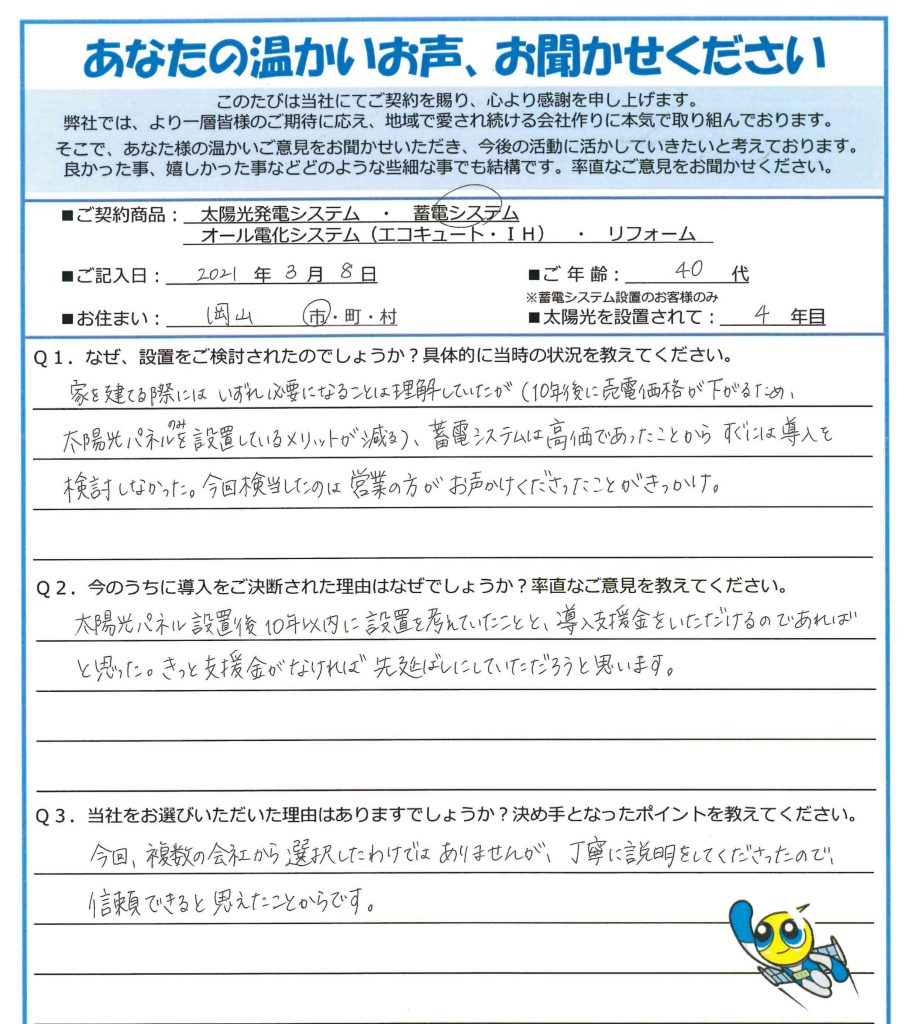 あなたの温かいお声、お聞かせください
このたびは当社にてご契約を賜り、心より感謝を申し上げます。
弊社では、より一層皆様のご期待に応え、地域で愛され続ける会社作りに本気で取り組んでおります。
そこで、あなた様の温かいご意見をお聞かせいただき、今後の活動に活かしていきたいと考えております。
良かった事、嬉しかった事などどのような些細な事でも結構です。率直なご意見をお聞かせください。
■ご契約商品： 太陽光発電システム ・ 蓄電システム
オール電化システム（エコキュート・ＩＨ） ・ リフォーム
■ご記入日： 2021 年 3 月 8 日 ■ご 年 齢： 40 代
※蓄電システム設置のお客様のみ
■お住まい： 岡山 市・町・村 ■太陽光を設置されて： 4 年目
Ｑ１．なぜ、設置をご検討されたのでしょうか？具体的に当時の状況を教えてください。
家を建てる際には いずれ必要になることは理解していたが（10年後に売電価格が下がるため、
太陽光パネルのみを設置しているメリットが減る）、蓄電システムは高価であったことから すぐには導入を
検討しなかった。今回検当したのは営業の方が お声かけくださったことがきっかけ。
Ｑ２．今のうちに導入をご決断された理由はなぜでしょうか？率直なご意見を教えてください。
太陽光パネル設置後10年以内に設置を考えていたことと、導入支援金をいただけるのであれば
と思った。きっと支援金がなければ 先延ばしにしていただろうと思います。
Ｑ３．当社をお選びいただいた理由はありますでしょうか？決め手となったポイントを教えてください。
今回、複数の会社から選択したわけではありませんが、丁寧に説明をしてくださったので、
信頼できると思えたことからです。